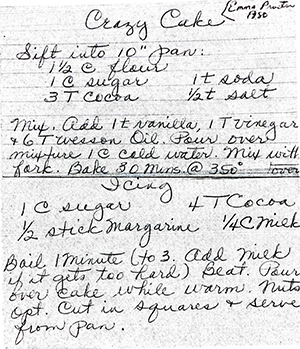 Crazy Cake
Emma Procter
1950
Sift into 10" pan:
1½ C flour
1 C sugar 1 t soda
3 T Cocoa ½ t salt
Mix. Add 1 t vanilla, 1 T vinegar
& 6 T Wesson Oil. Pour over
mixture 1 C cold water. Mix with
fork. Bake 30 mins @ 350 over
Icing
1 C sugar 4 T Cocoa
½ stick Margarine ¼ C Milk
Boil 1 Minute (to 3. Add Milk
if it gets too hard) Beat. Pour
over Cake while warm. Nuts
Opt. Cut in squares & serve
from pan.